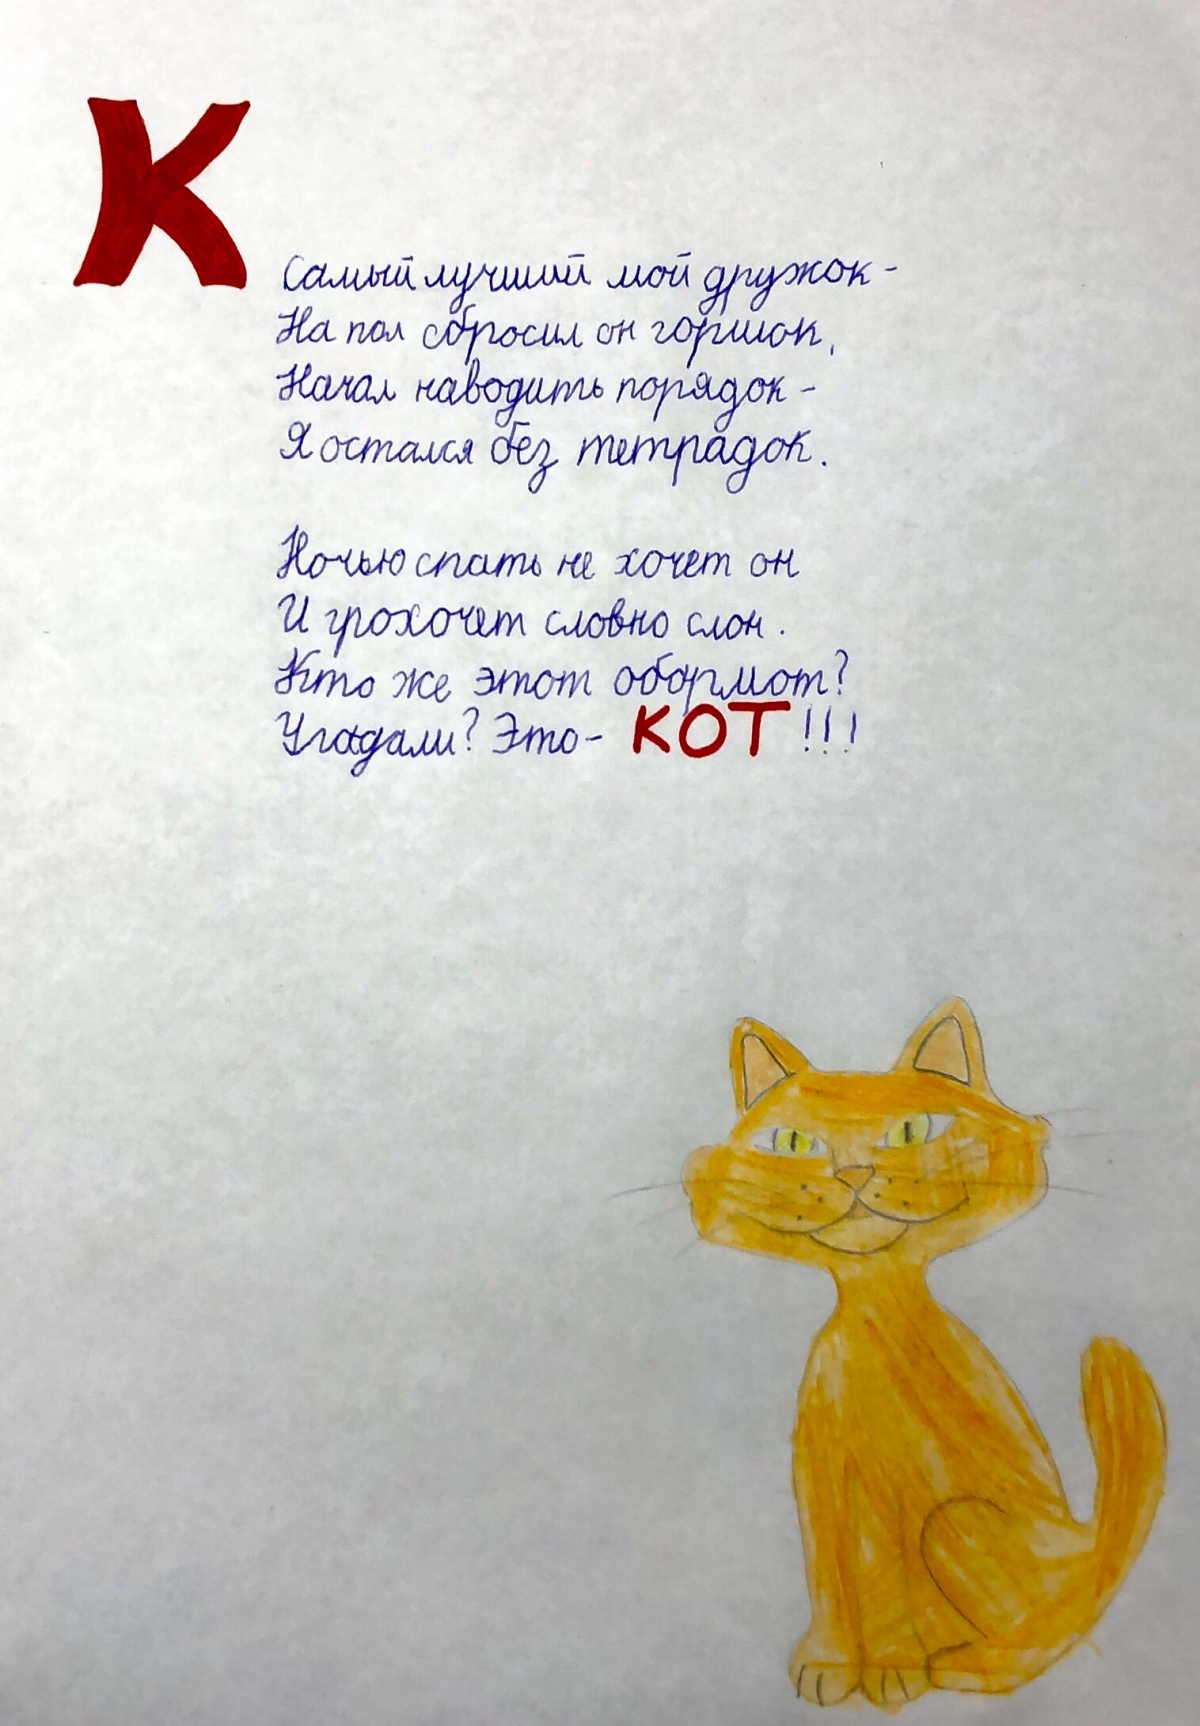 К
Самый лучший мой дружок -
На пол сбросил он горшок,
Начал наводить порядок -
Я остался без тетрадок.
Ночью спать не хочет он
И грохочет словно слон.
Кто же этот обормот?
Угадали? Это - КОТ!!!